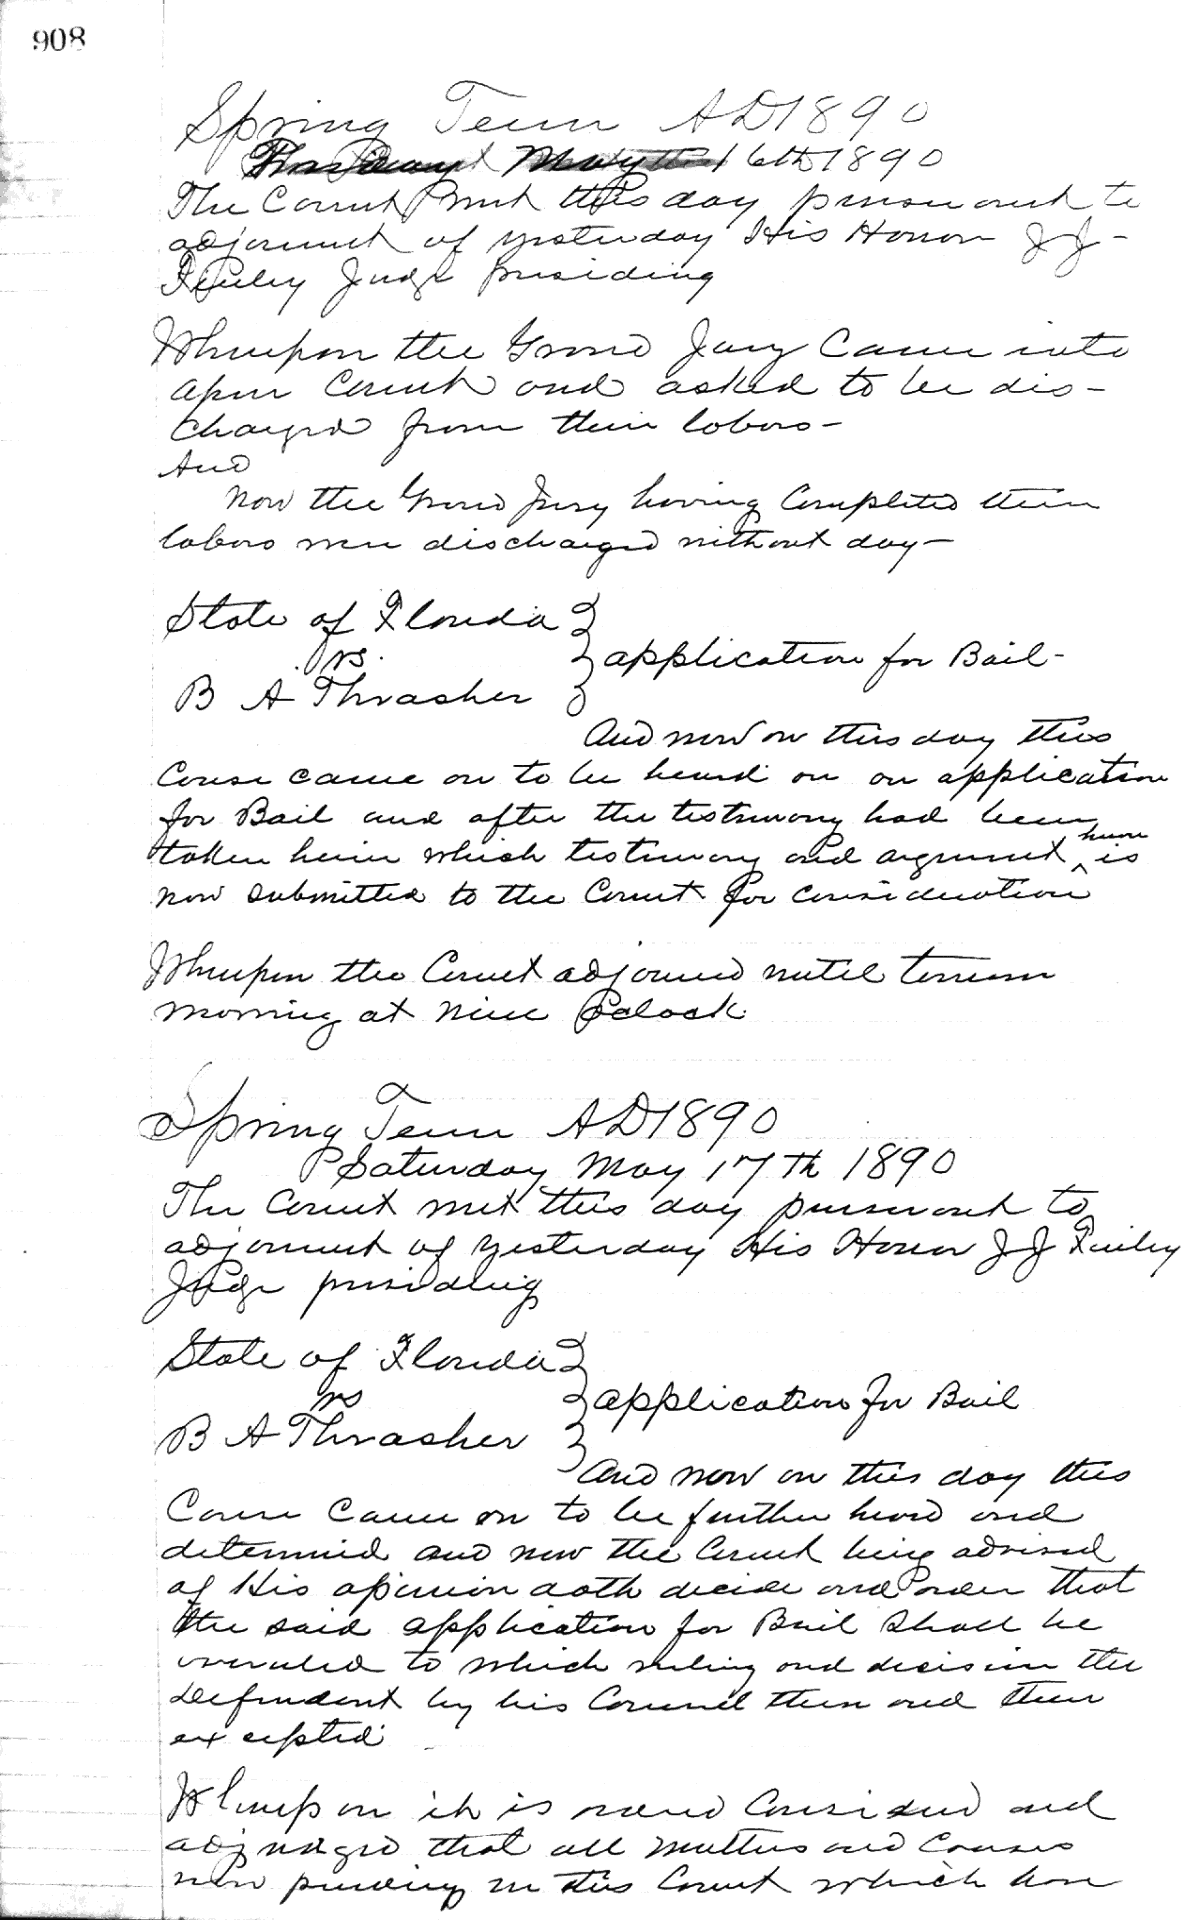 908
Spring Term AD 1890
May 16th 1890
The Court met this day pursuant to
adjournmt of yesterday His Honor J J -
Finley Judge presiding
Whereupon the Grand Jury Came into
open Court and asked to be dis-
charged from their labors -
And
Now the Grand Jury having Completed their
labors were discharged without day -
State of Florida
vs.
B A Thrasher
application for Bail -
And now on this day this
Cause came on to be heard on an application
for Bail and after the testimony had been
taken herein which testimony and argument is
now submitted to the Court for consideration
Whereupon the Court adjourned until
morning at nine Oclock
Spring Term AD 1890
Saturday May 17th 1890
The Court met this day pursuant to
adjournmt of yesterday His Honor J J Finley
Judge presiding
State of Florida
vs
B A Thrasher
application for Bail
And now on this day this
Cause Came on to be further heard and
determined and now the Court being advised
of His opinion doth decide and order that
the said application for Bail Shall be
overruled to which ruling and decision the
Defendant by his Councel then and there
excepted
Whereupon it is ordered Considered and
adjudged that all Matters and Causes
now pending in this Court which have